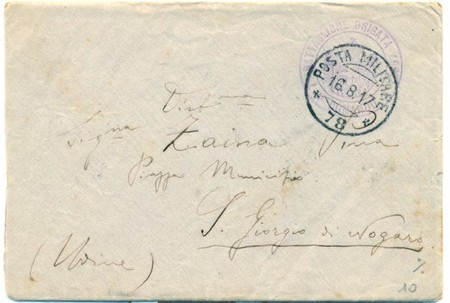 BRIGATA
POSTA MILITARE
16.8.17
78
Zaina
Piazza Municipio
S. Giorgio di Nogaro
(Udine)
%
10